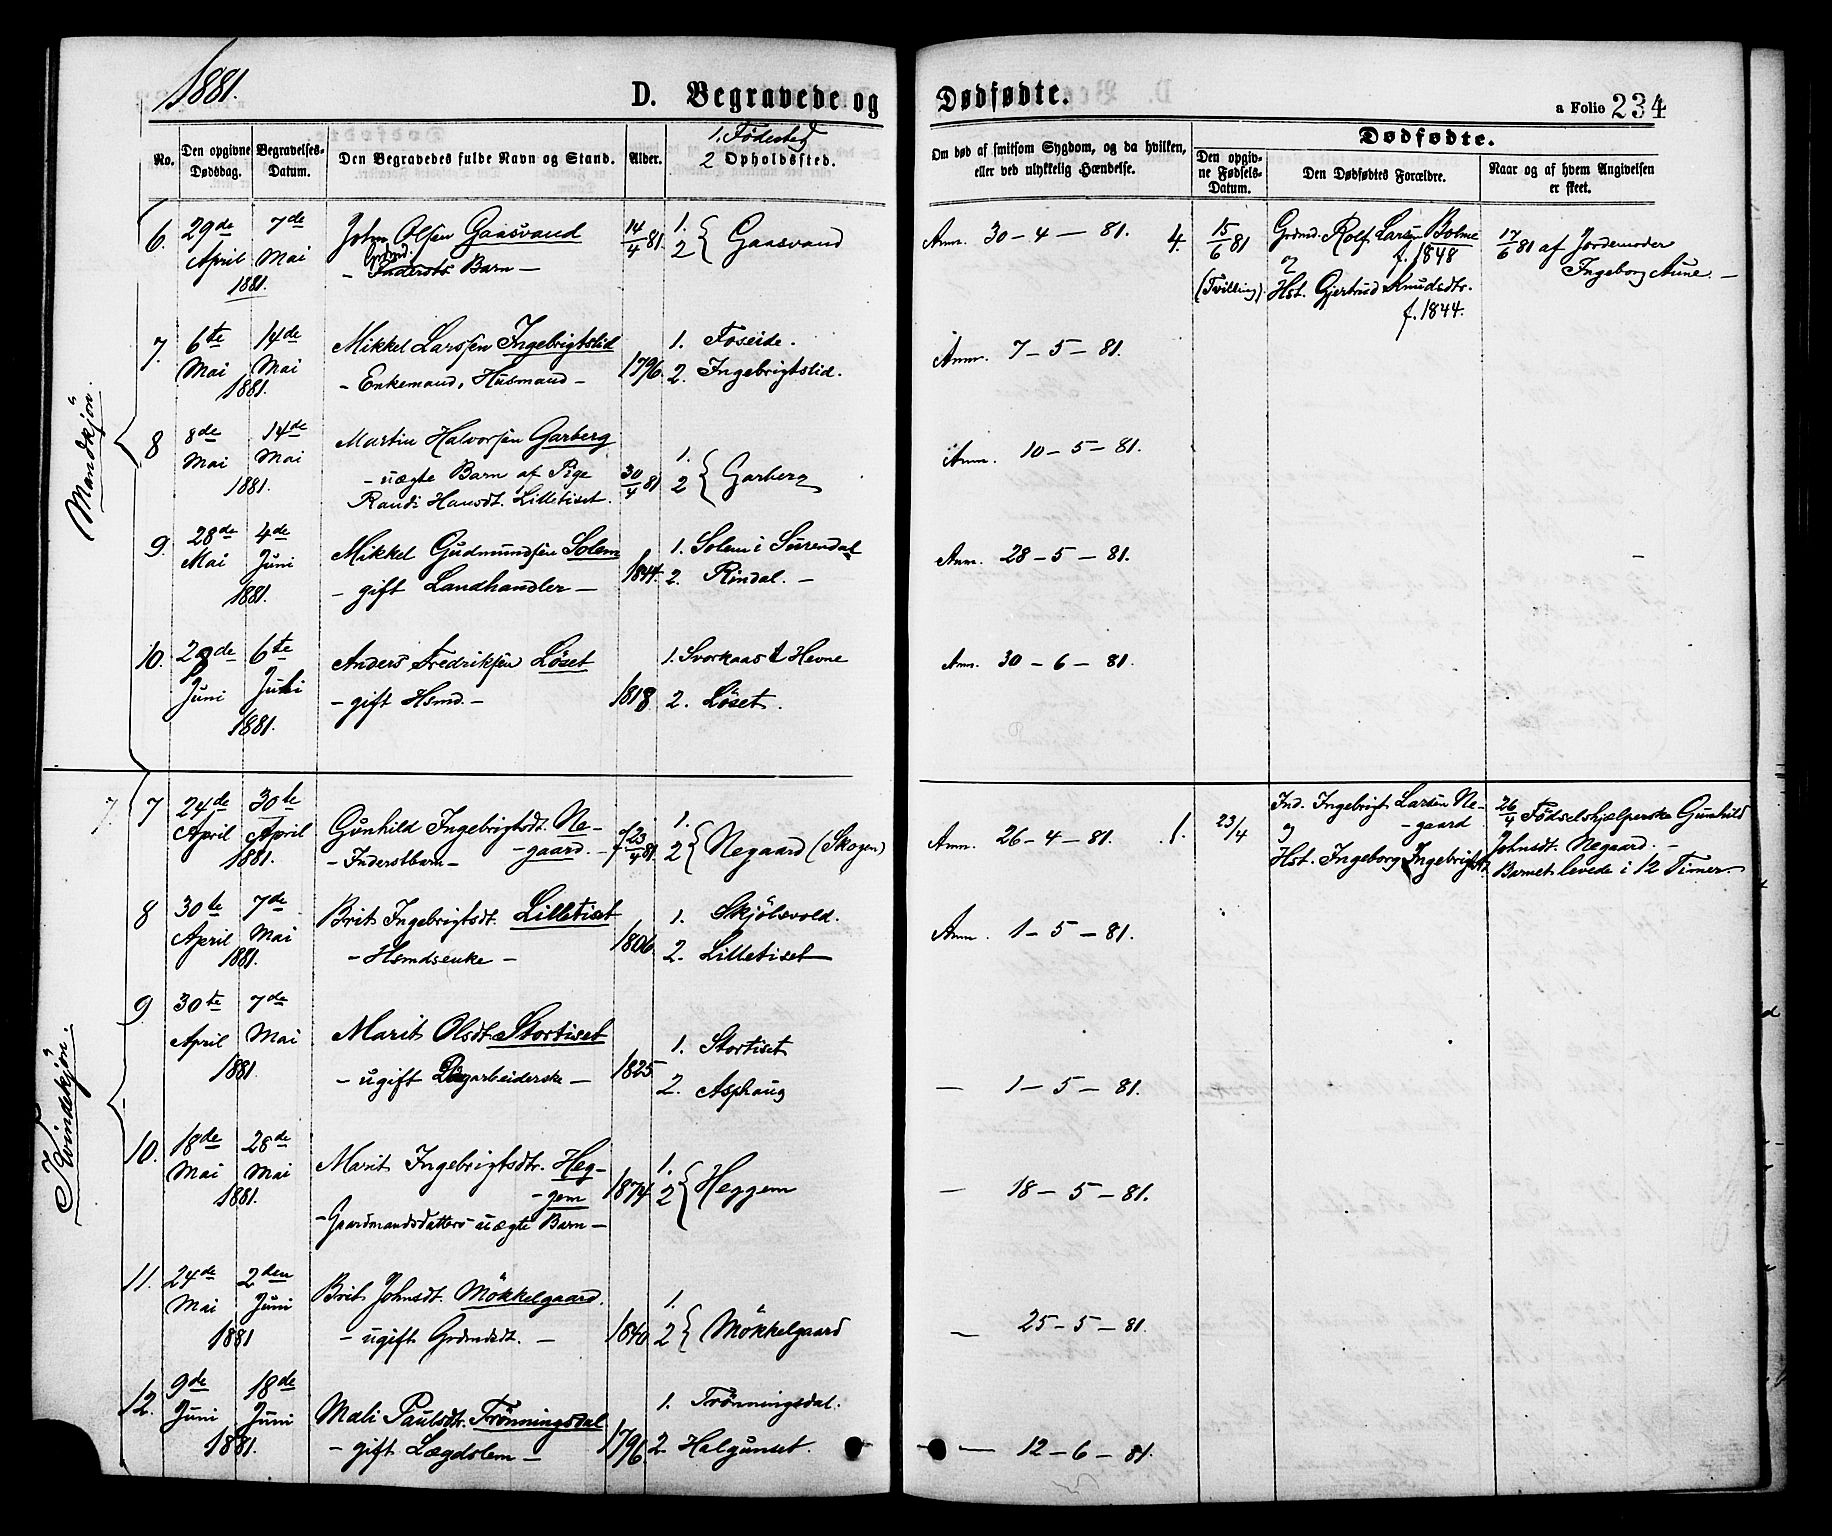 1881.
D. Begravede og Dødfødte.
a Folio 234
No.
Den opgivne Dødsdag.
Begravelses-Datum.
Den Begravedes fulde Navn og Stand.
Alder.
1. Fødested
2 Opholdssted.
Om død af smitsom Sygdom, og da hvilken,
eller ved ulykkelig Hændelse.
Dødfødte.
Den opgiv-
ne Fødsels-
Datum.
Den Dødfødtes Forældre.
Naar og af hvem Angivelsen
er skeet.
Mandkjön.
6. 29de April 7de Mai 1881.
John Olsen Gaasvand
Grdmd.
- Indersts Barn -
14/4 81.
1. 2 { Gaasvand
Anm. 30 - 4 - 81.
4. 15/6 81 (Tvilling).
Grdmd. Rolf Larsen Bolme
f. 1848
og
Hst. Gjertrud Knudsdtr.
f. 1844.
17/6 81 af Jordemoder
Ingeborg Aune -
7. 6te Mai 14de Mai 1881.
Mikkel Larssen Ingebrigtslid
- Enkemand, Husmand -
1796.
1. Foseide.
2. Ingebrigtslid.
Anm. 7 - 5 - 81.
8 8de Mai 14de Mai 1881.
Martin Halvorsen Garberg
- uægte Barn af Pige
Randi Hansdt. Lilletiset.
30/4 81
1. 2 { Garberg
Anm. 10 - 5 - 81.
9. 28de Mai 4de Juni 1881.
Mikkel Gudmundsen Solem
- gift Landhandler -
1844.
1. Solem i Surendal
2. Rindal. -
Anm. 28 - 5 - 81.
10. 29de Juni 6te Juli 1881.
Anders Fredriksen Löset
- gift Hsmd. -
1818.
1. Svorkaas i Hevne
2. Löset.
Anm. 30 - 6 - 81.
Kvindekjön.
7. 7 24de April 30te April 1881.
Gunhild Ingebrigtsdt. Ne-
- gaard. -
- Inderstbarn -
f 23/4 81.
1. 2 { Negaard (Skogen)
Anm. 26 - 4 - 81.
1. 23/4
Ind. Ingebrigt Larsen Ne-
- gaard
og
Hst. Ingeborg Ingebrigtsdt.
26/4 Fødselshjælperske Gunhild
Johnsdt. Negaard. -
Barnet levede i 12 Timer.
8 30te April 7de Mai 1881.
Brit Ingebrigtsdt. Lilletiset
- Hsmdsenke -
1806.
1. Skjölsvold.
2. Lilletiset
Anm. 1 - 5 - 81.
9 30te April 7de Mai 1881.
Marit Olsdt. Stortiset
- ugift Dagarbeiderske -
1825.
1. Stortiset
2. Asphaug
- 1 - 5 - 81.
10. 18de Mai 28de Mai 1881.
Marit Ingebrigtsdtr. Heg-
- gem
- Gaardmandsdatters uægte Barn -
1874.
1. 2 { Heggem
- 18 - 5 - 81.
11. 24de Mai 2den Juni 1881
Brit Johnsdt. Mökkelgaard.
- ugift Grdmdsdt. -
1840.
1. 2 { Mökkelgaard
- 25 - 5 - 81.
12. 9de Juni 18de Juni 1881.
Mali Paulsdtr. Trönningsdal
- gift Lægdslem -
1796.
1. Trönningsdal.
2. Halgunset.
- 12 - 6 - 81.